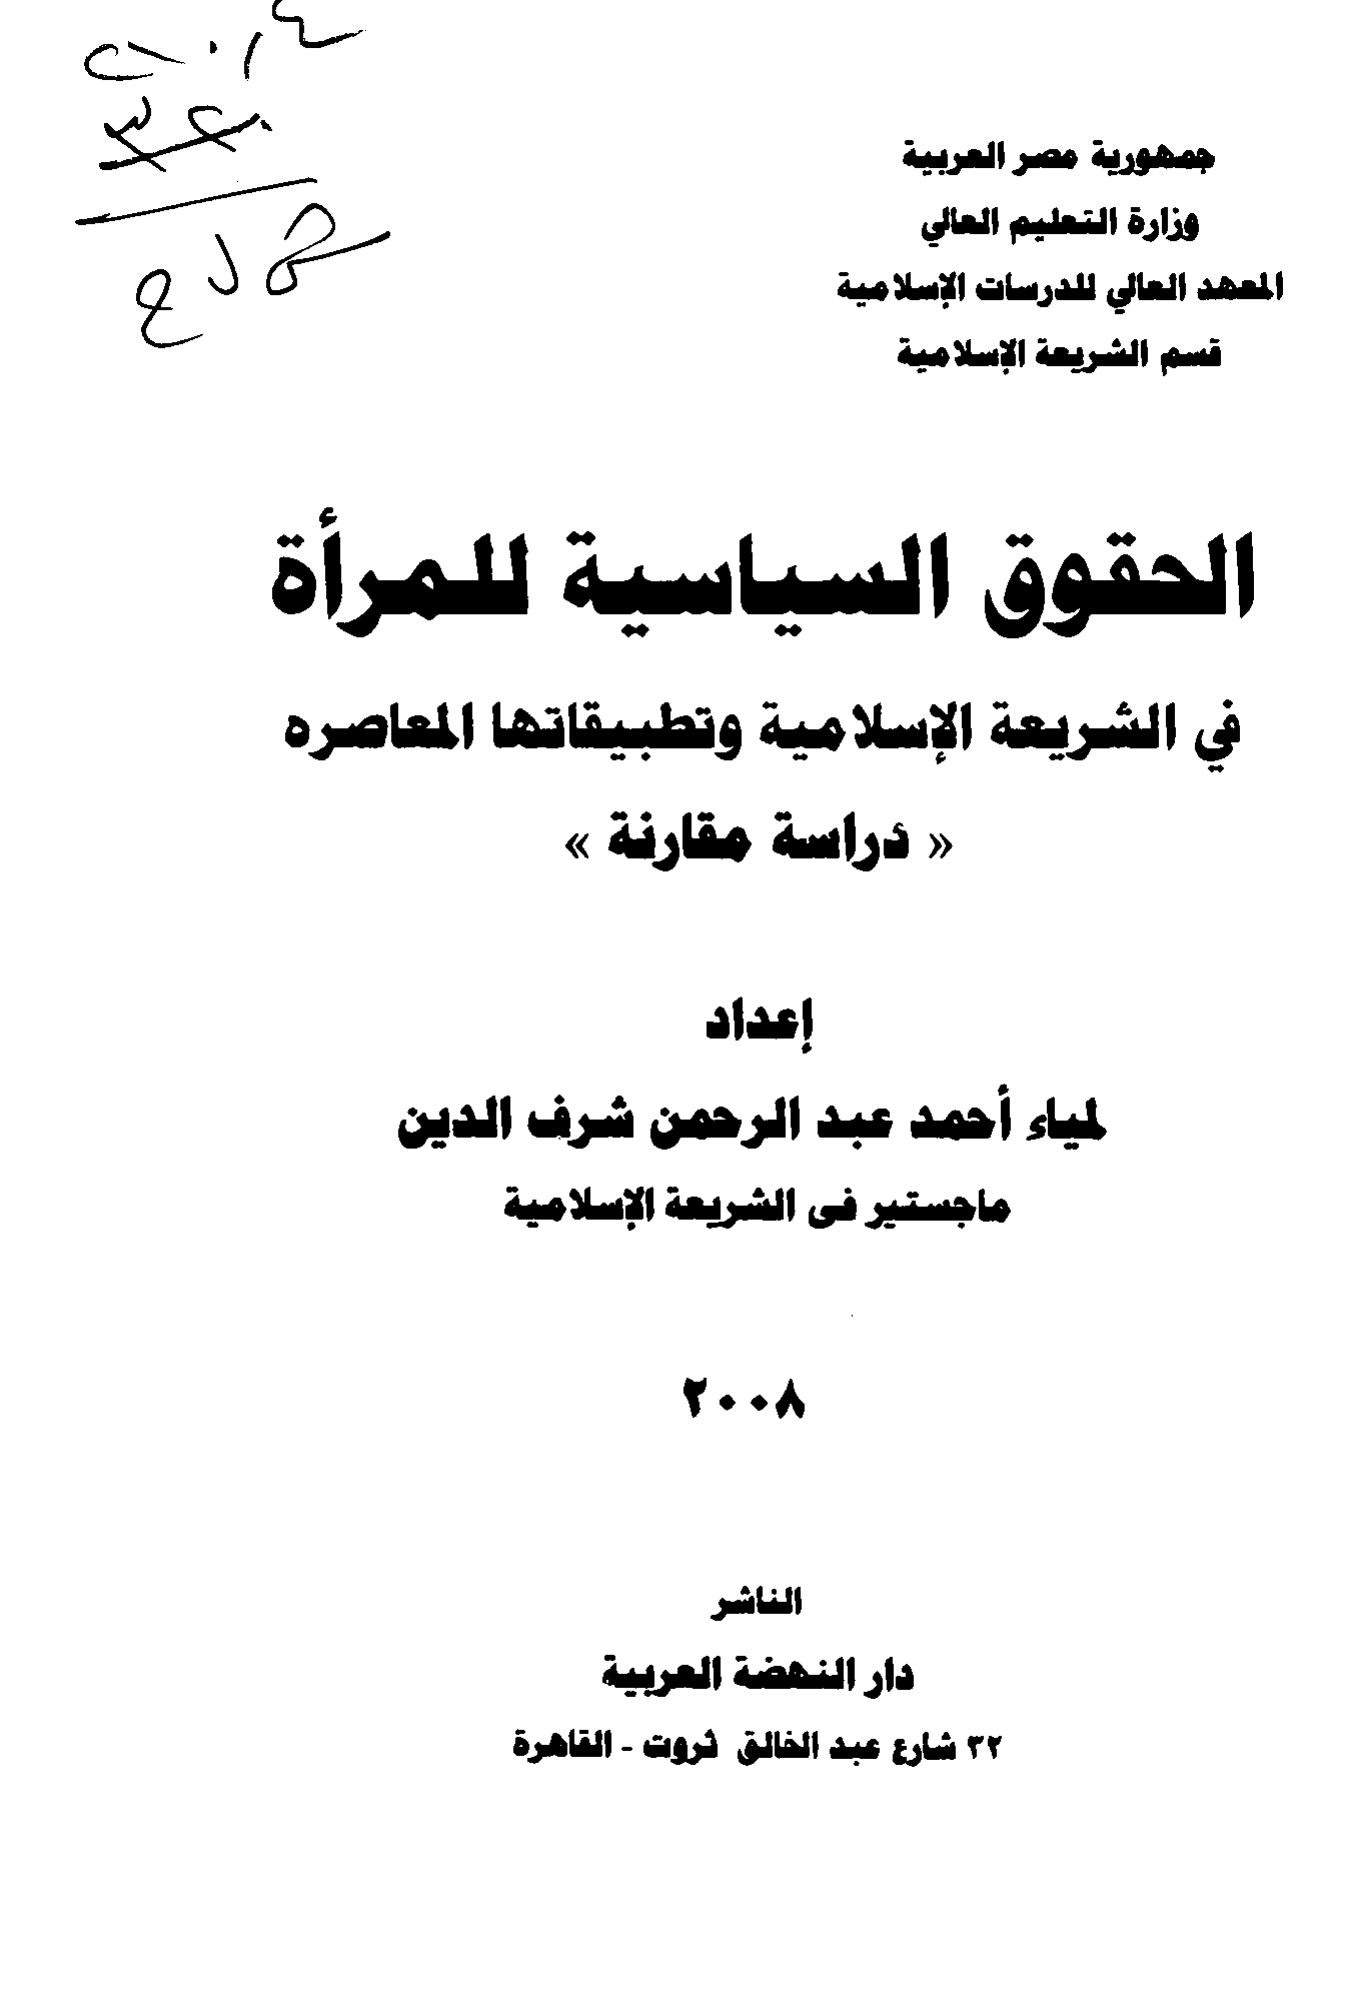 جمهورية مصر العربية
وزارة التعليم العالي
المعهد العالي للدرسات الإسلامية
قسم الشريعة الإسلامية
الحقوق السياسية للمرأة
في الشريعة الإسلامية وتطبيقاتها المعاصره
« دراسة مقارنة »
إعداد
لمياء أحمد عبد الرحمن شرف الدين
ماجستير فى الشريعة الإسلامية
٢٠٠٨
الناشر
دار النهضة العربية
٣٢ شارع عبد الخالق ثروت - القاهرة